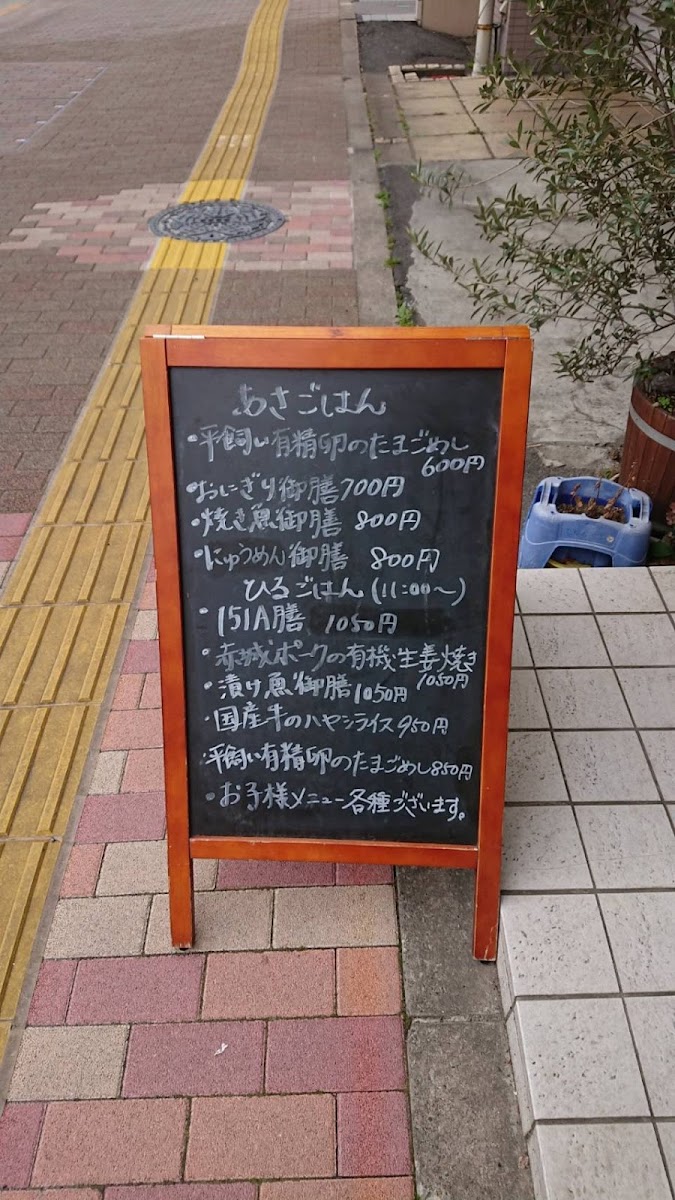 あさごはん
・平飼い有精卵のたまごめし
600円
・おにぎり御膳700円
・焼き魚御膳 800円
・にゅうめん御膳 800円
ひるごはん(11:00〜)
・151A膳 1050円
・赤城ポークの有機生姜焼き
1050円
・漬け魚御膳1050円
・国産牛のハヤシライス950円
・平飼い有精卵のたまごめし850円
・お子様メニュー各種ございます。